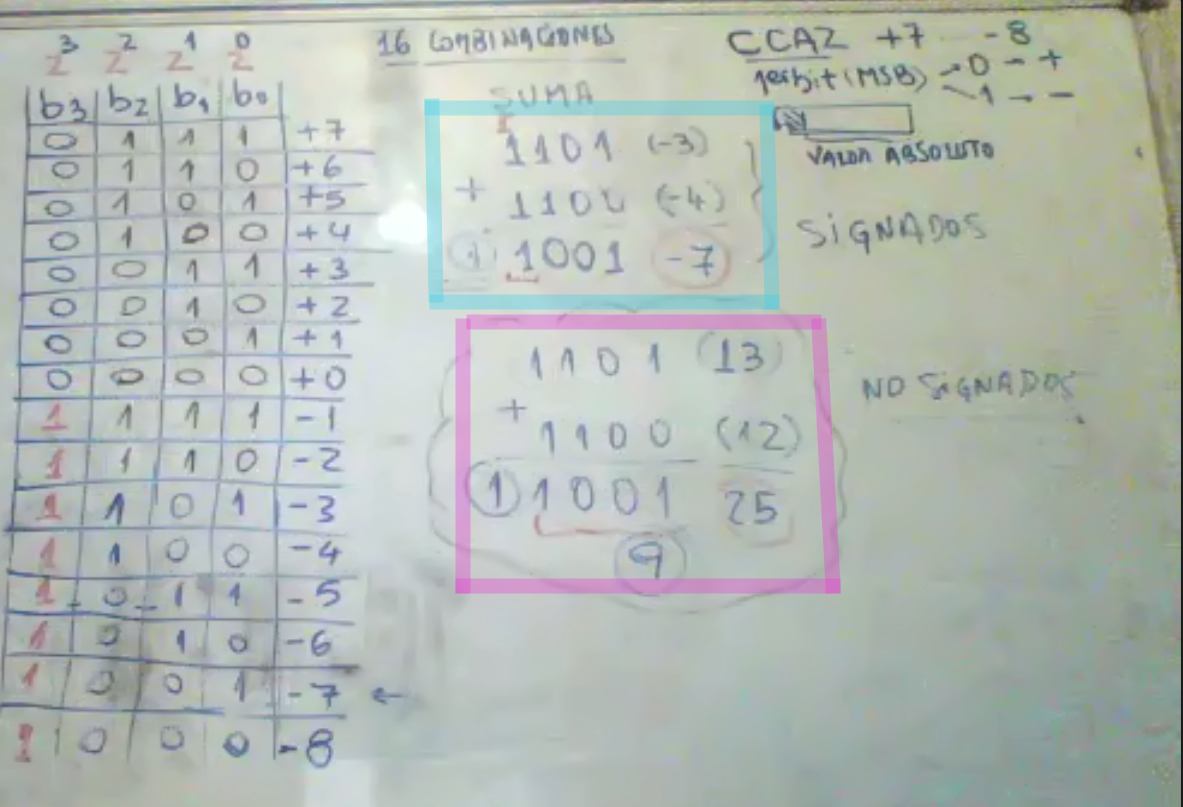 2³ 2² 2¹ 2⁰
b3 b2 b1 b0
0 1 1 1 +7
0 1 1 0 +6
0 1 0 1 +5
0 1 0 0 +4
0 0 1 1 +3
0 0 1 0 +2
0 0 0 1 +1
0 0 0 0 +0
1 1 1 1 -1
1 1 1 0 -2
1 1 0 1 -3
1 1 0 0 -4
1 0 1 1 -5
1 0 1 0 -6
1 0 0 1 -7 ←
1 0 0 0 -8
16 COMBINACIONES
SUMA
1
1101 (-3)
+ 110 (-4)
(1) 1001 -7
1101 (13)
+
1100 (12)
(1) 1001 25
9
CCA2 +7 -8
1er bit (MSB) → 0 → +
→ 1 → -
VALOR ABSOLUTO
SIGNADOS
NO SIGNADOS